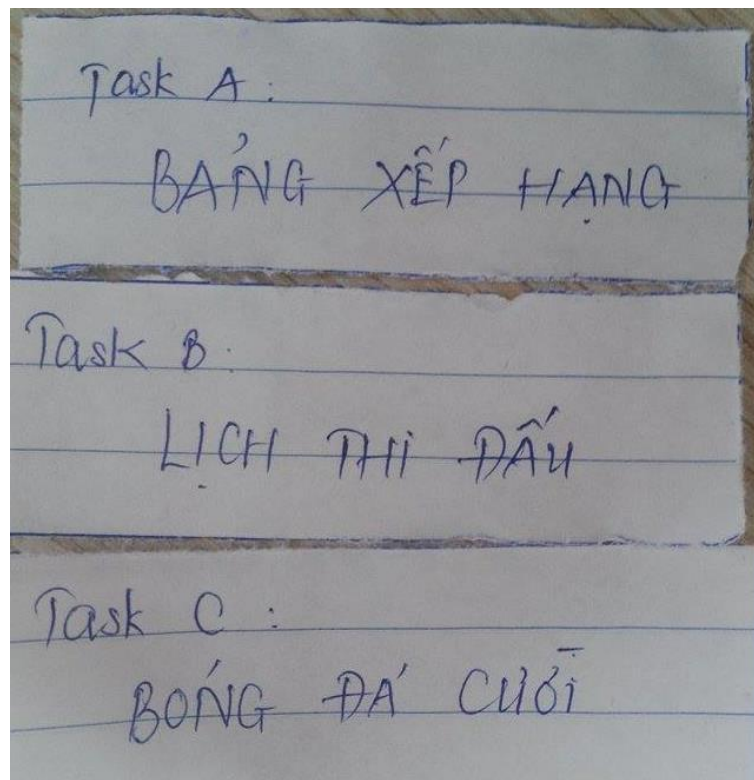 Task A :
BẢNG XẾP HẠNG
Task B :
LỊCH THI ĐẤU
Task C :
BÓNG ĐÁ CƯỜI